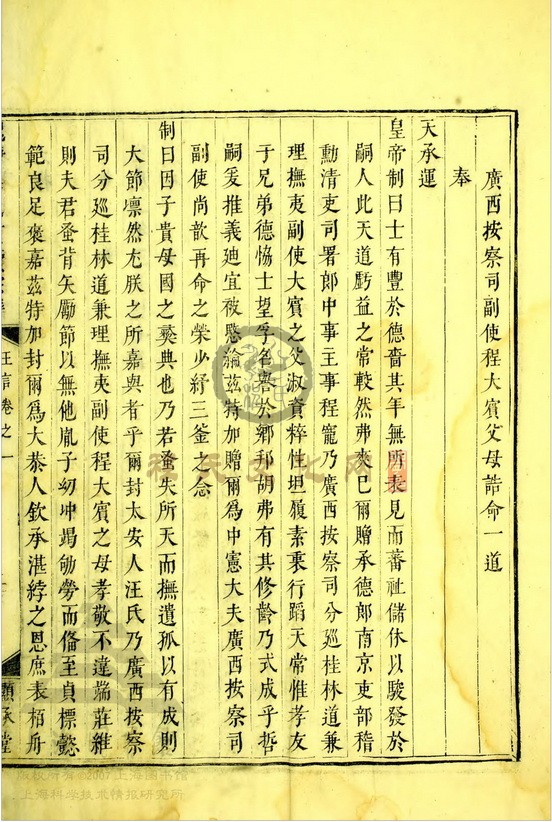 廣西按察司副使程大賓父母誥命一道
奉
天承運
皇帝制曰士有豐於德嗇其年無所表見而蕃祉儲休以駿發於
嗣人此天道虧益之常較然弗爽巳爾贈承德郎南京吏部稽
勳清吏司署郎中事主事程寵乃廣西按察司分廵桂林道兼
理撫夷副使大賓之父淑資粹性坦履素秉行蹈天常惟孝友
于兄弟德恊士望孚名譽於鄉邦胡弗有其修齡乃式成乎哲
嗣爰推義廸宜被懸綸茲特加贈爾爲中憲大夫廣西按察司
副使尚歆再命之榮少紓三釜之念
制曰因子貴母國之彝典也乃若蚤失所天而撫遺孤以有成則
大節凛然尤朕之所嘉與者乎爾封太安人汪氏乃廣西按察
司分廵桂林道兼理撫夷副使程大賓之母孝敬不違端莊維
則夫君蚤背矢勵節以無他胤子幼冲竭劬勞而俻至貞標懿
範良足褒嘉茲特加封爾爲大恭人欽承湛綍之恩庶表栢舟
王言卷之一
顯承堂
程氏文化网
版权所有 2007上海图书馆
上海科学技术情报研究所